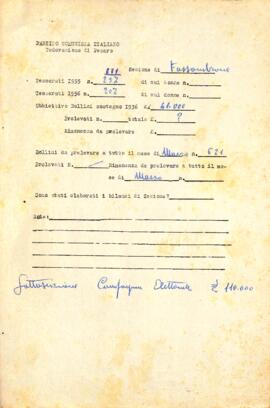 PARTITO COMUNISTA ITALIANO
Federazione di Pesaro
Sezione di Fossombrone
Tesserati I955 n. 297 di cui donne n.
Tesserati I956 n. 207 di cui donne n.
Obbiettivo Bollini sostegno I956 £ 41.000
Prelevati n. totale £ ?
Rimanenza da prelevare n.
Bollini da prelevare a tutto il mese di Marzo n. 621
Prelevati N. Rimanenza da prelevare a tutto il me-
se di Marzo n.
Sono stati elaborati i bilanci di Sezione?
Note:
Sottoscrizione Campagna Elettorale £ 110.000